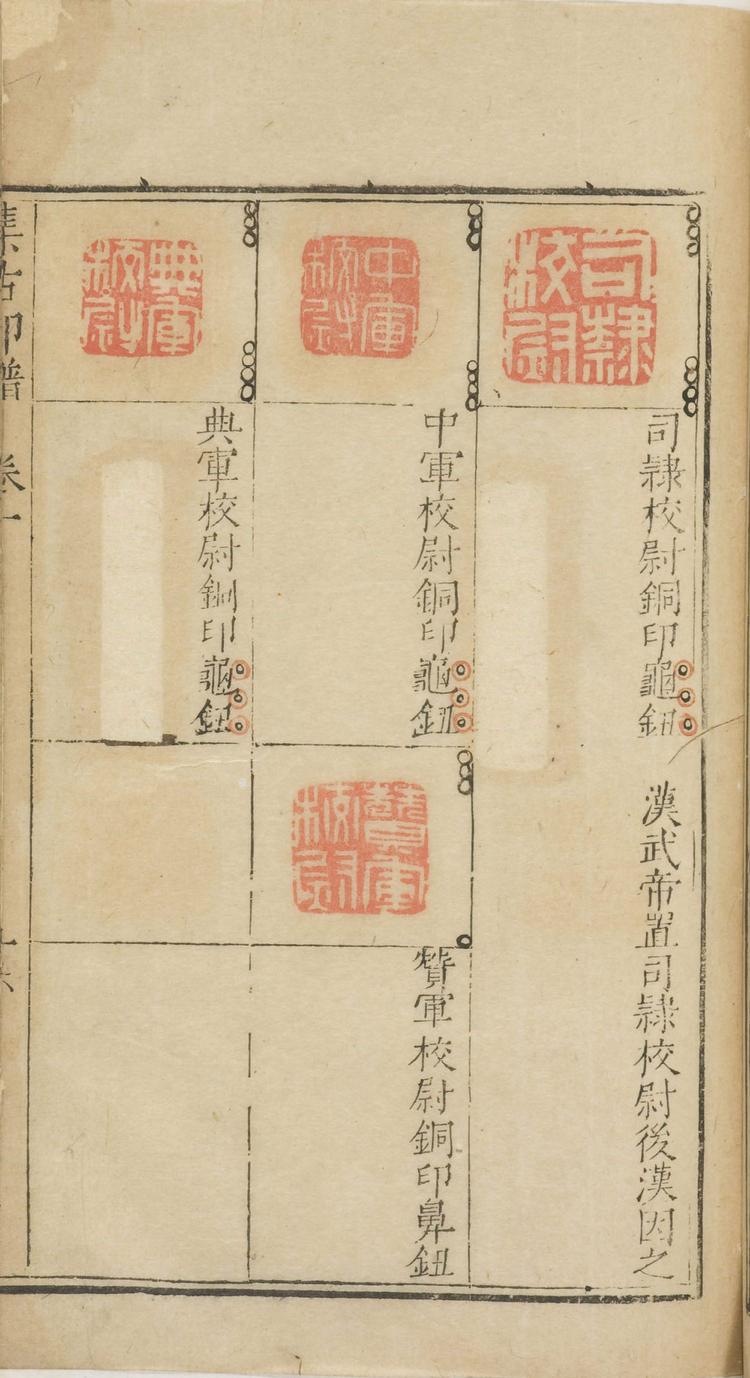 司隸校尉
司隸校尉銅印龜鈕　漢武帝置司隸校尉後漢因之
中軍校尉
中軍校尉銅印龜鈕
贊軍校尉
贊軍校尉銅印鼻鈕
典軍校尉
典軍校尉銅印龜鈕
集古印譜　卷一